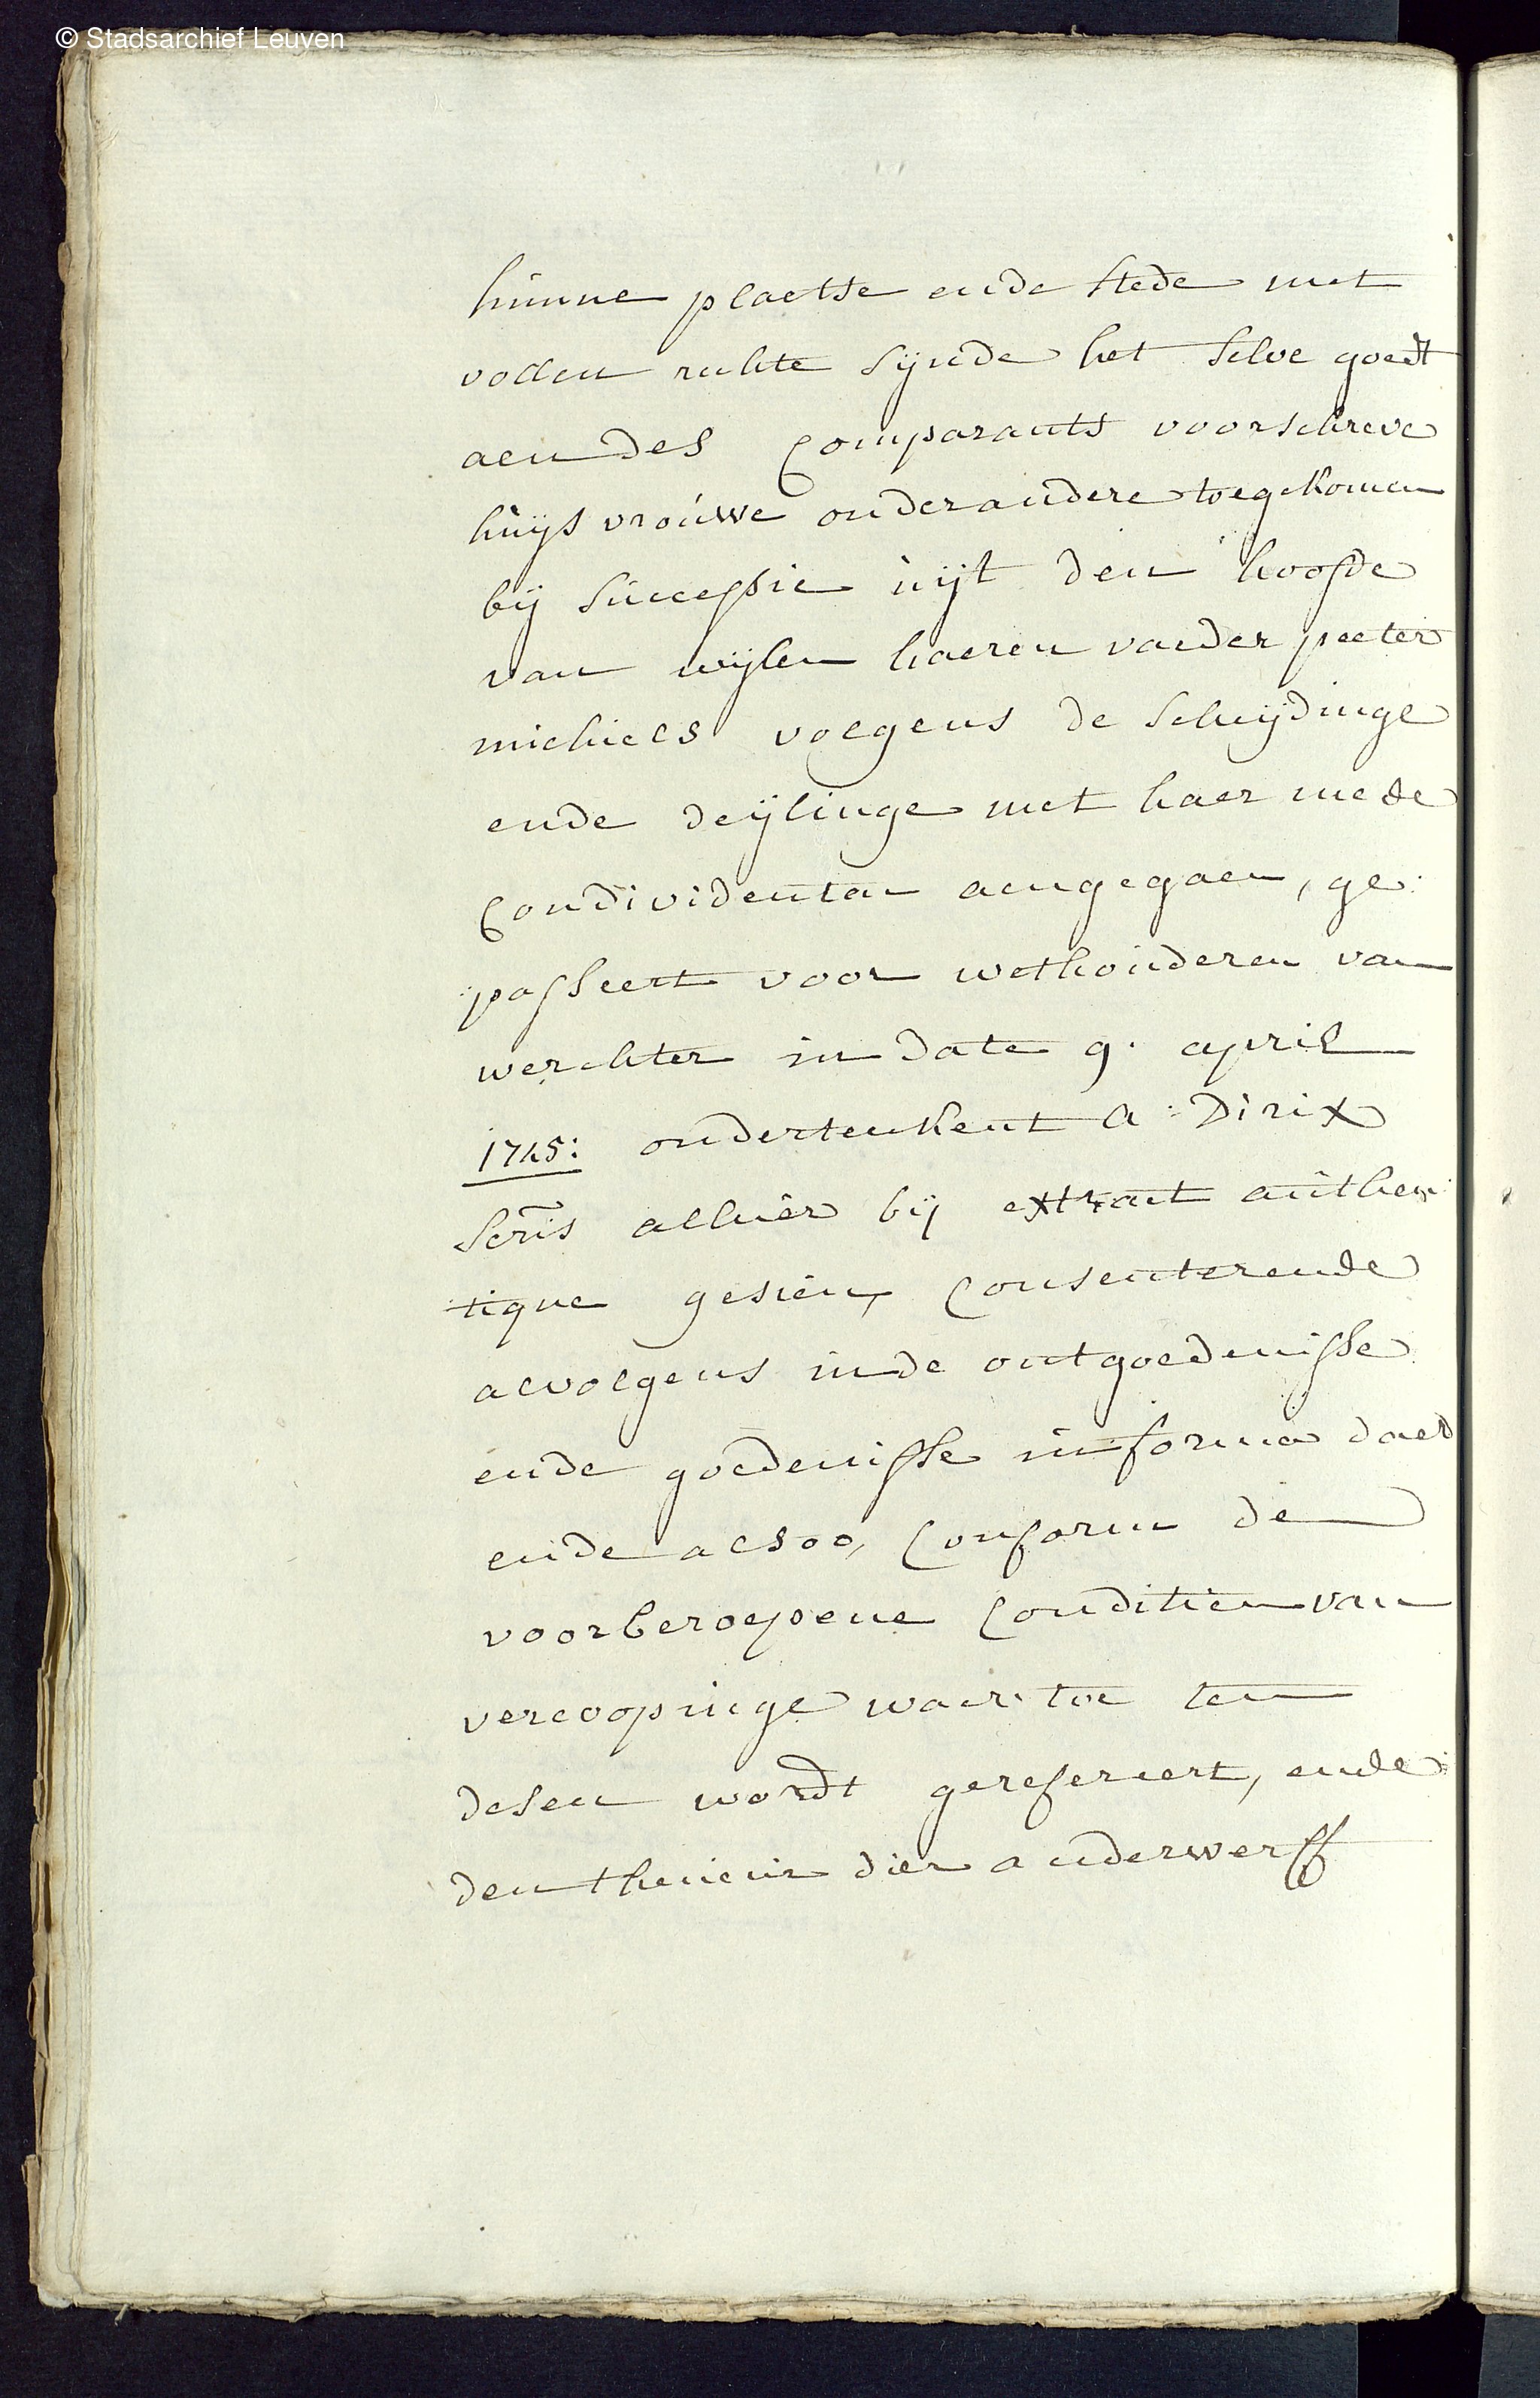 © Stadsarchief Leuven
hunne plaetse ende stede met
vollen rechte sijnde het selve goedt
aen des comparants voorschreve
huijsvrouwe onder andere toegekomen
bij successie uijt den hoofde
van wijlen haeren vaeder peeter
michiels volgens de scheijdinge
ende deijlinge met haer mede
condividenten aengegaen, ge:
:passeert voor wethouderen van
werchter in date 9. april
1745: onderteekent A: Dirix
Scris alhier bij extract authen:
:tique gesien, Consenterende
alvolgens inde ontgoedenisse
ende goedenisse in forma daer
ende alsoo, Conform de
voorberoepene Conditien van
vercoopinge waer toe ten
desen wordt gerefereert, ende
den theneur dier anderwerff